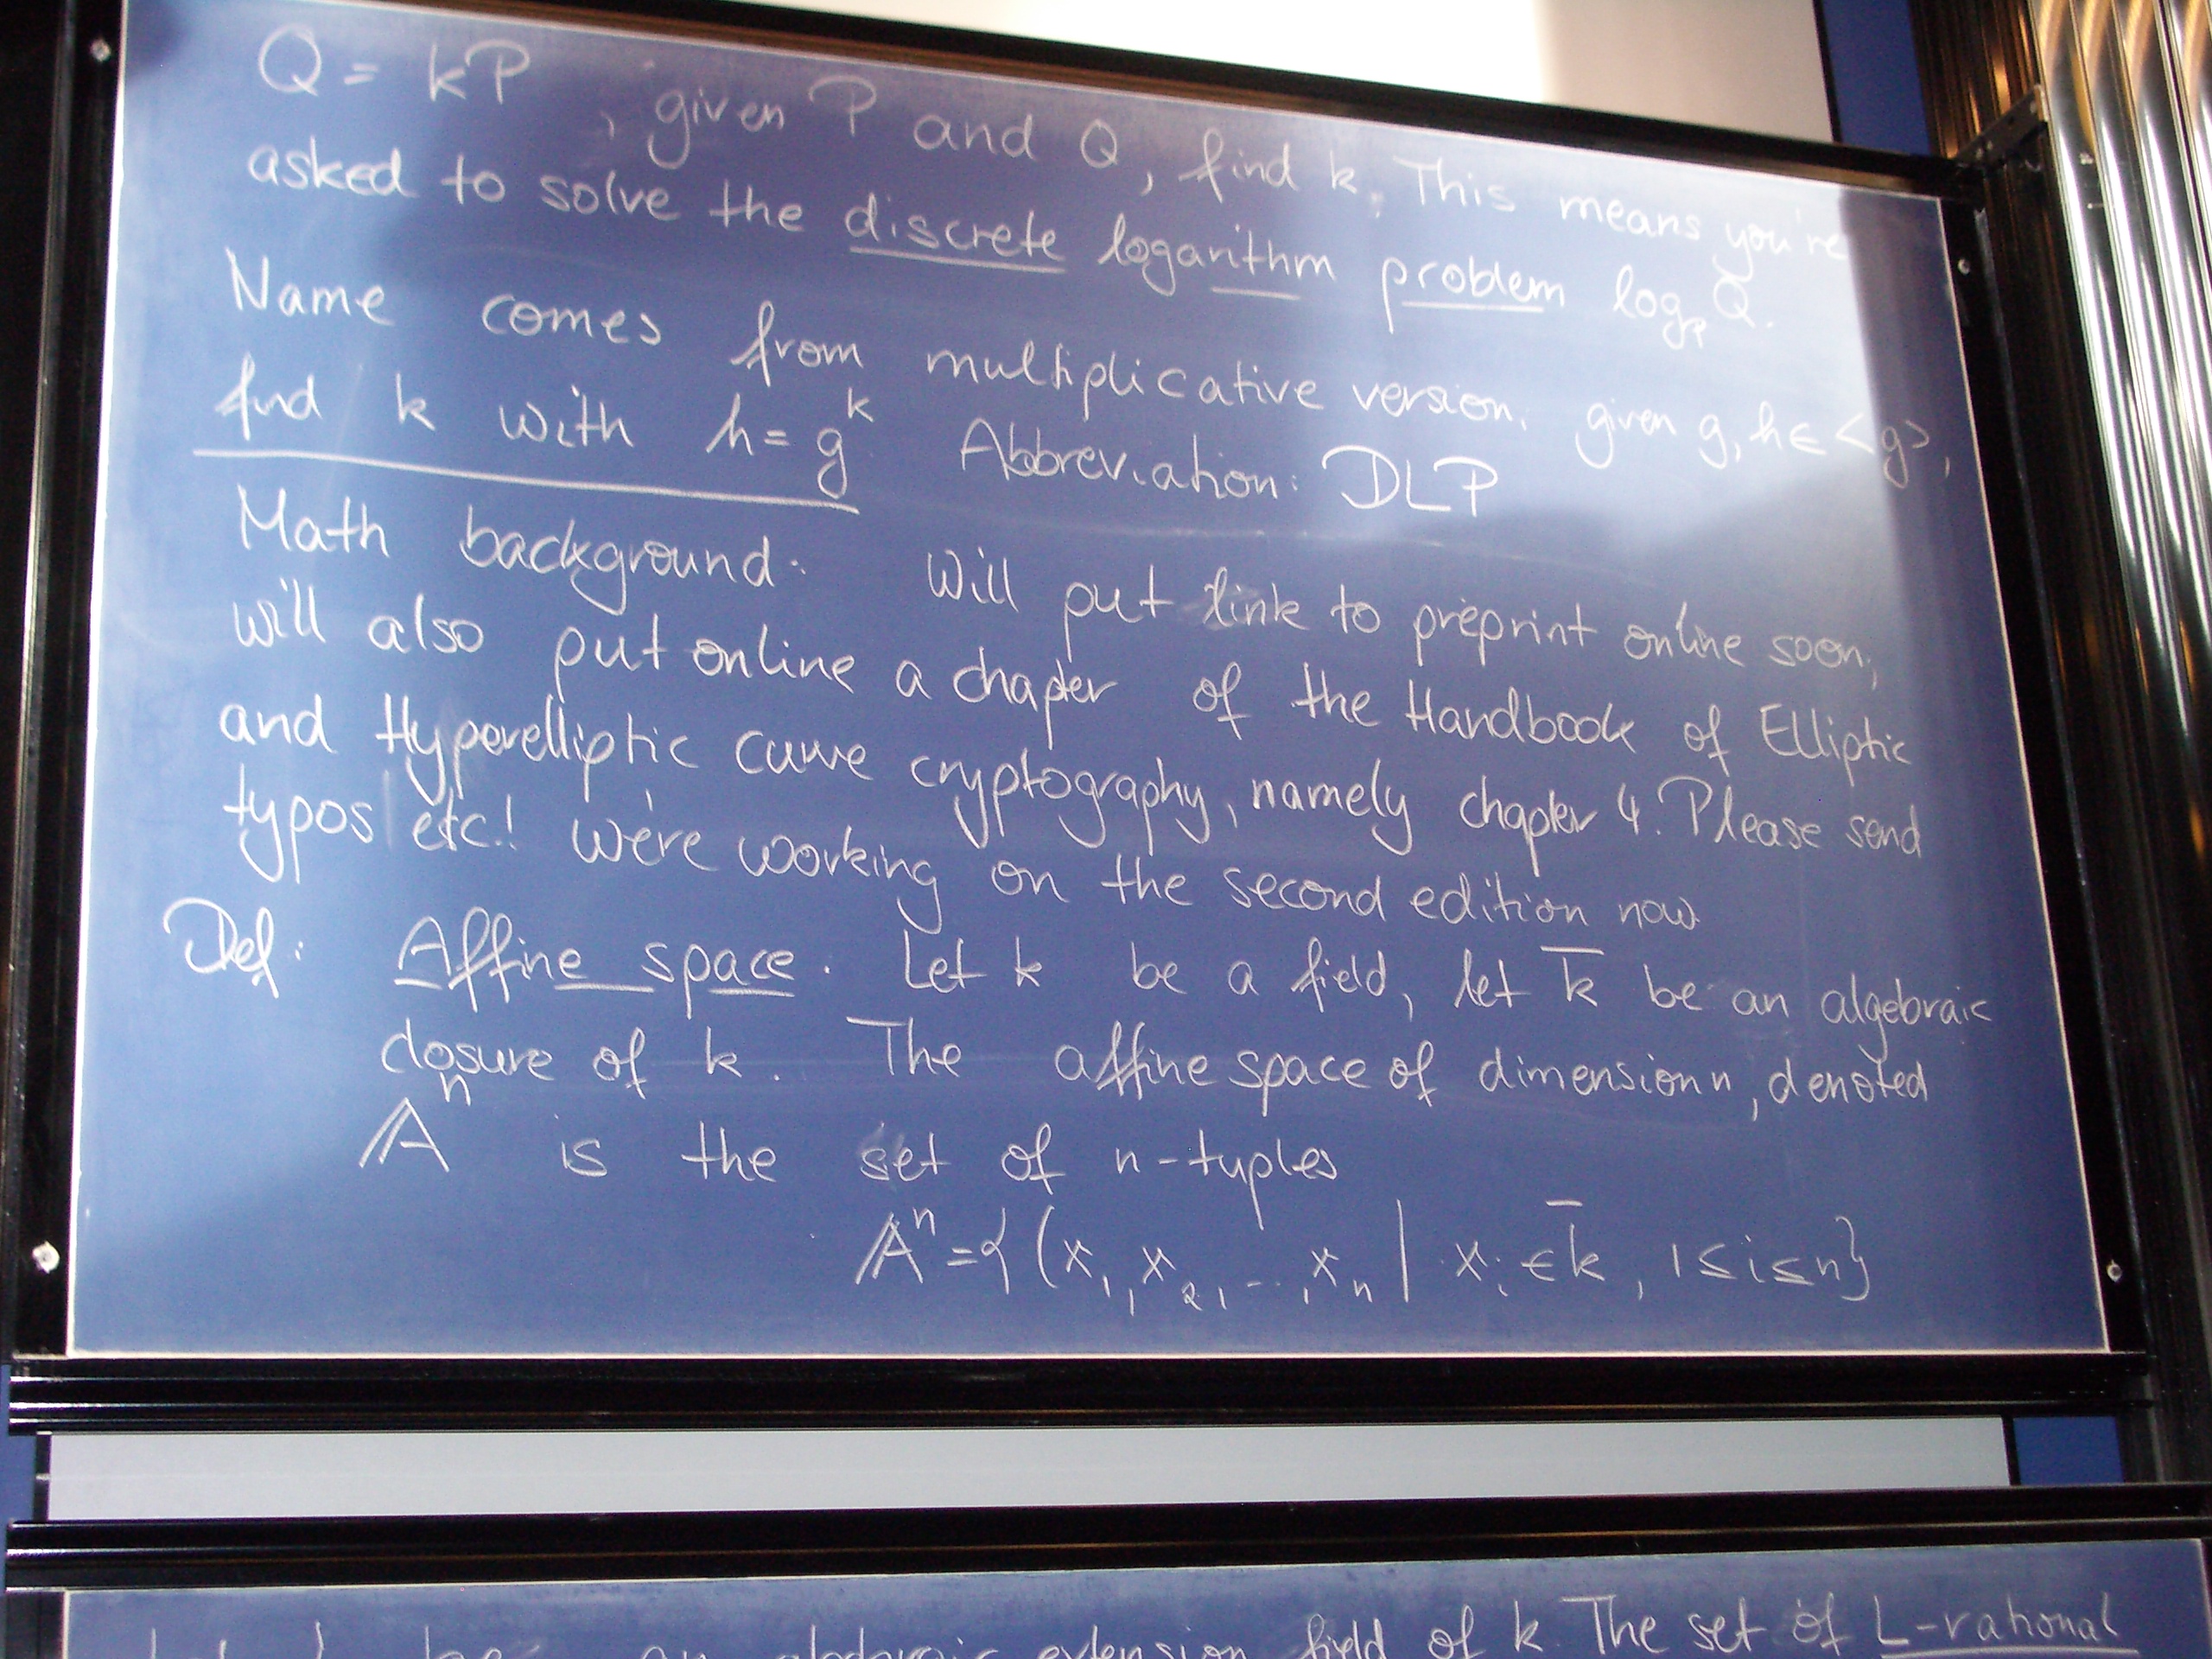 Q = kP , given P and Q, find k. This means you're
asked to solve the discrete logarithm problem log_P Q.
Name comes from multiplicative version: given g, h ∈ <g>,
find k with h = g^k. Abbreviation: DLP
Math background: Will put link to preprint online soon,
will also put online a chapter of the Handbook of Elliptic
and Hyperelliptic curve cryptography, namely chapter 4. Please send
typos etc! We're working on the second edition now.
Def: Affine space. Let k be a field, let k̄ be an algebraic
closure of k. The affine space of dimension n, denoted
𝔸^n is the set of n-tuples
𝔸^n = { (x_1, x_2, ..., x_n | x_i ∈ k̄, 1 ≤ i ≤ n}
be an algebraic extension field of k. The set of L-rational